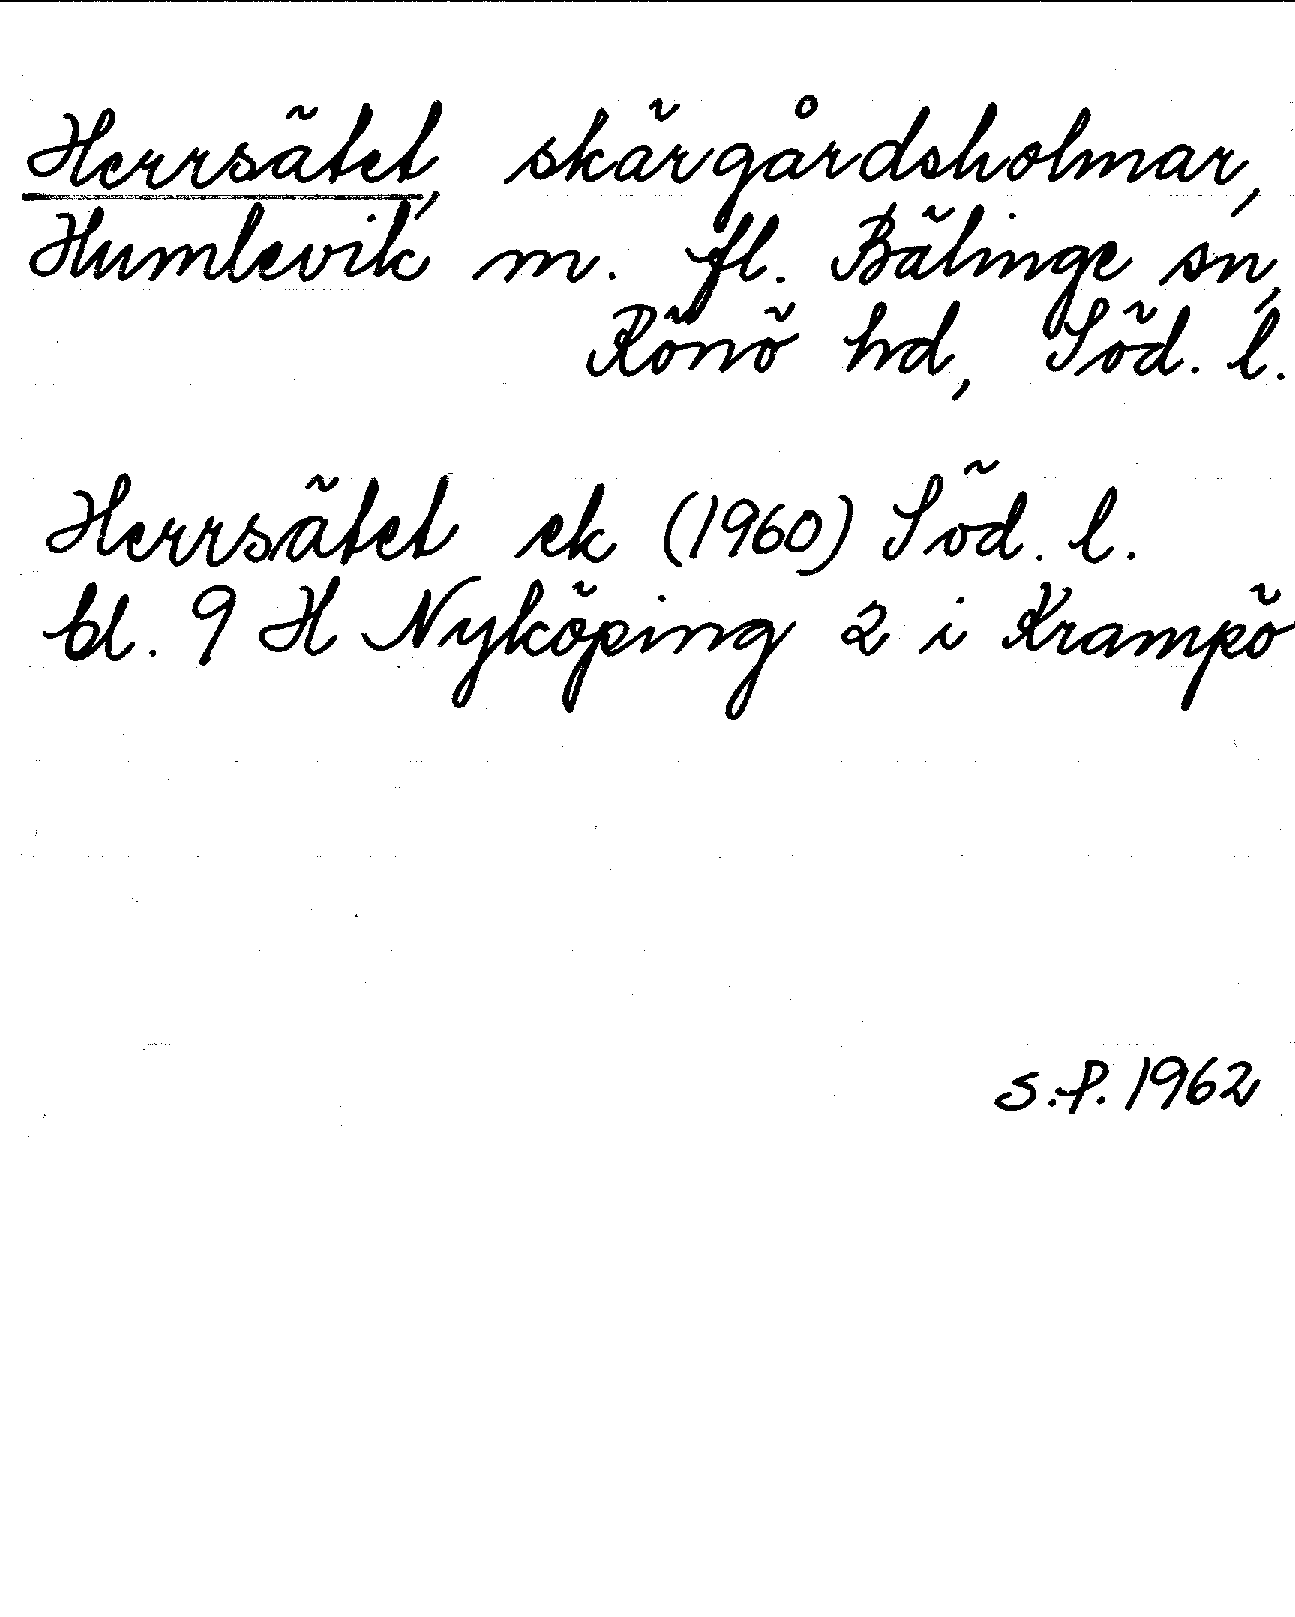 Herrsätet, skärgårdsholmar,
Humlevik m. fl. Bälinge sn,
Rönö hd, Söd. l.
Herrsätet ek (1960) Söd. l.
bl. 9 H Nyköping 2 i Krampö
S.P. 1962